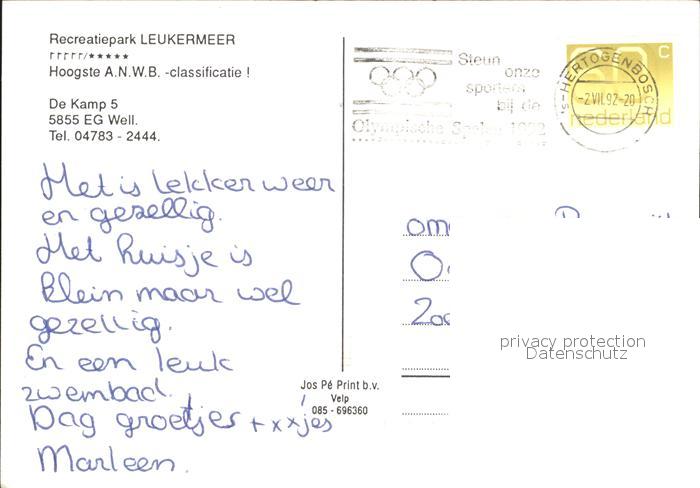 Recreatiepark LEUKERMEER
rrrrr/★★★★★
Hoogste A.N.W.B. -classificatie !
De Kamp 5
5855 EG Well.
Tel. 04783 - 2444.
Het is lekker weer
en gezellig.
Het huisje is
klein maar wel
gezellig.
En een leuk
zwembad.
Dag groetjes + xxjes
Marleen.
Jos Pé Print b.v.
Velp
085 - 696360
Steun
onze
sporters
bij de
Olympische Spelen 1992
's-HERTOGENBOSCH
-2.VII.92-20
C
nederland
privacy protection
Datenschutz